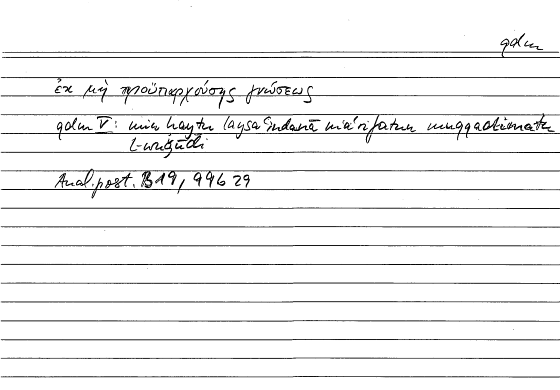 qdm
ἐκ μὴ προϋπαρχούσης γνώσεως
qdm V: min ḥaytu laysa ʿindanā maʿrifatun mutaqaddimatu
l-wuǧūdi
Anal. post. B 19, 99b 29